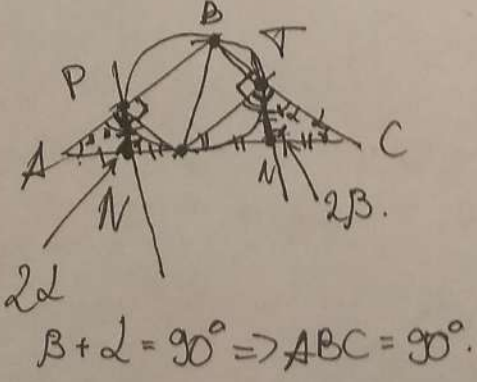 B
P
T
A
C
N
N
2β.
2α
β + α = 90° => ABC = 90°.